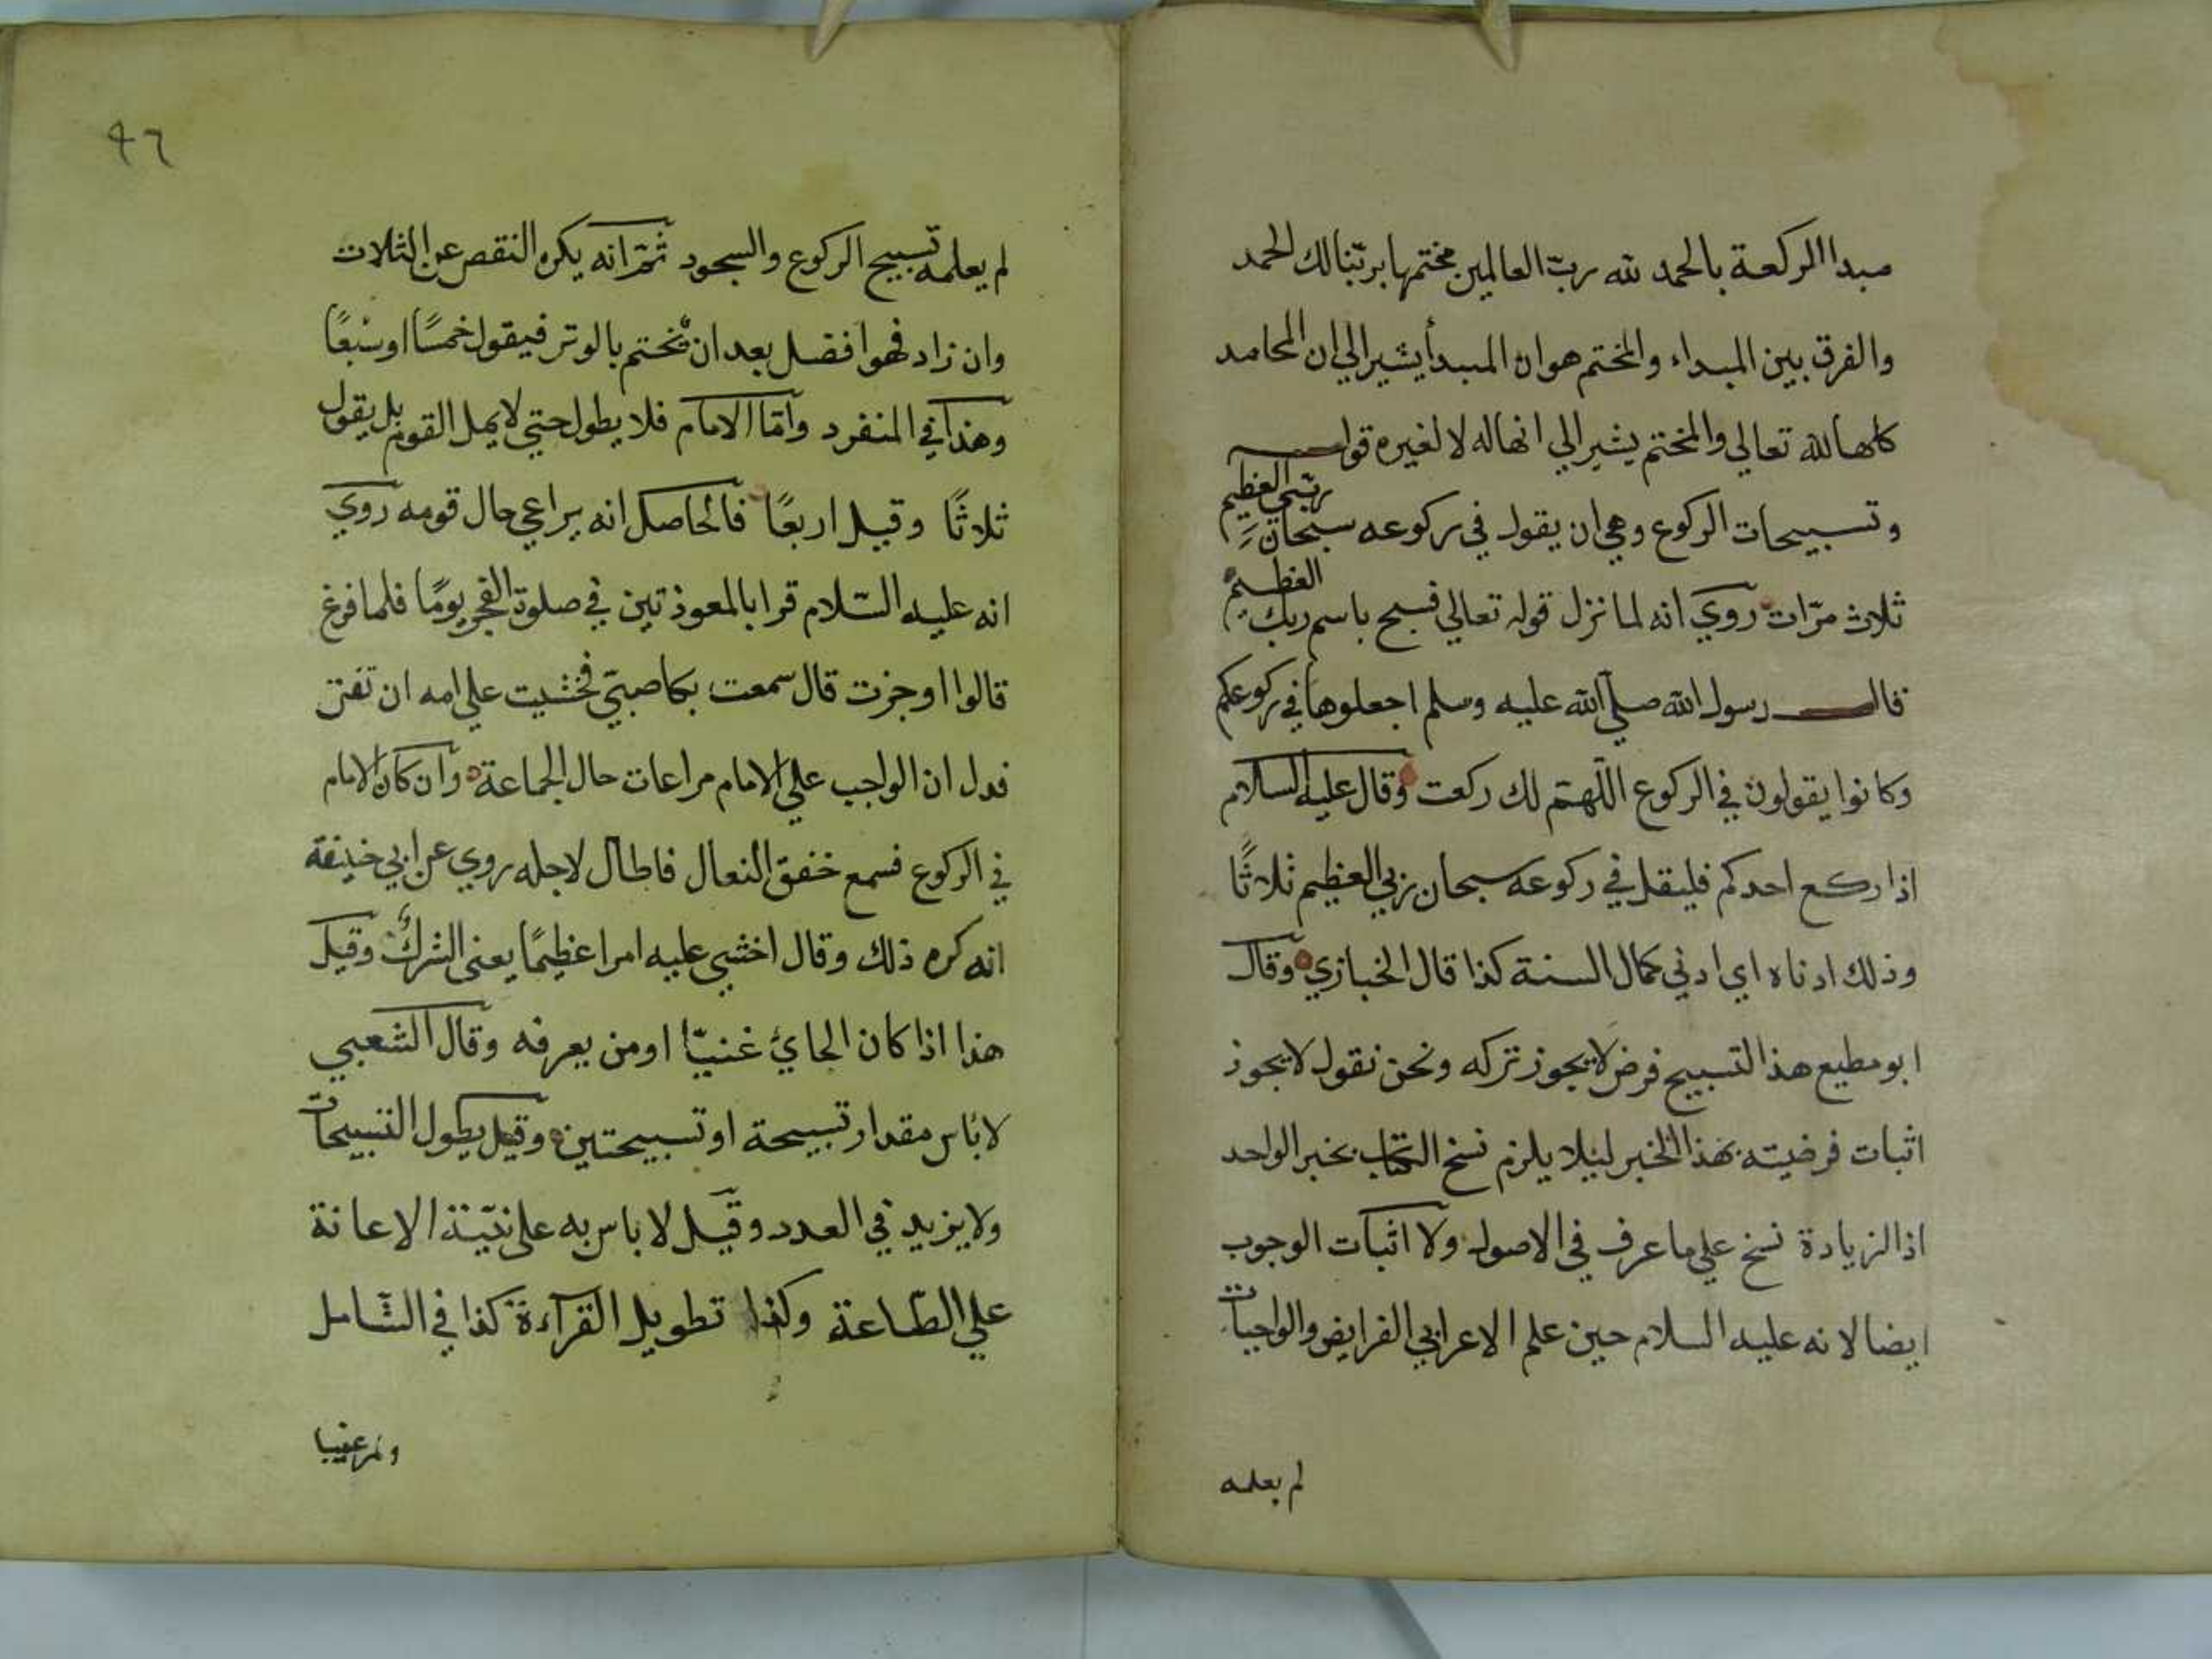 مبدا الركعة بالحمد لله ربّ العالمين مختمها بربّنا لك الحمد
والفرق بين المبداء والمختم هو ان المبدأ يشير الي ان المحامد
كلها لله تعالي والمختم يشير الي انها له لا لغيره قوله
وتسبيحات الركوع وهي ان يقول في ركوعه سبحان ربّي العظيم
ثلاث مرّات روي انه لما نزل قوله تعالي فسبح باسم ربك العظيم
قال رسول الله صلّي الله عليه وسلم اجعلوها في ركوعكم
وكانوا يقولون في الركوع اللّهمّ لك ركعت وقال عليه السلام
اذا ركع احدكم فليقل في ركوعه سبحان ربي العظيم ثلاثًا
وذلك ادناه اي ادني كمال السنة كذا قال الخبازي وقال
ابو مطيع هذا التسبيح فرض لا يجوز تركه ونحن نقول لا يجوز
اثبات فرضيته بهذا الخبر ليلا يلزم نسخ الكتاب بخبر الواحد
اذ الزيادة نسخ علي ما عرف في الاصول ولا اثبات الوجوب
ايضا لانه عليه السلام حين علم الاعرابي الفرايض والواجبات
لم يعلمه
٩٦
لم يعلمه تسبيح الركوع والسجود ثمّ انه يكره النقص عن الثلاث
وان زاد فهو افضل بعد ان يختم بالوتر فيقول خمسًا او سبعًا
وهذا في المنفرد وامّا الامام فلا يطول حتي لا يمل القوم بل يقول
ثلاثًا وقيل اربعًا فالحاصل انه يراعي حال قومه روي
انه عليه السّلام قرا بالمعوذتين في صلوة الفجر يومًا فلما فرغ
قالوا اوجزت قال سمعت بكا صبيّ فخشيت علي امه ان تفتن
فدل ان الواجب علي الامام مراعات حال الجماعة وان كان الامام
في الركوع فسمع خفق النعال فاطال لاجله روي عن ابي حنيفة
انه كره ذلك وقال اخشي عليه امرا عظيمًا يعني الشرك وقيل
هذا اذا كان الجائ غنيّا او من يعرفه وقال الشعبي
لا باس مقدار تسبيحة او تسبيحتين وقيل يطول التسبيحات
ولا يزيد في العدد وقيل لا باس به علي نيّة الاعانة
علي الطّاعة وكذا تطويل القرآءة كذا في الشّامل